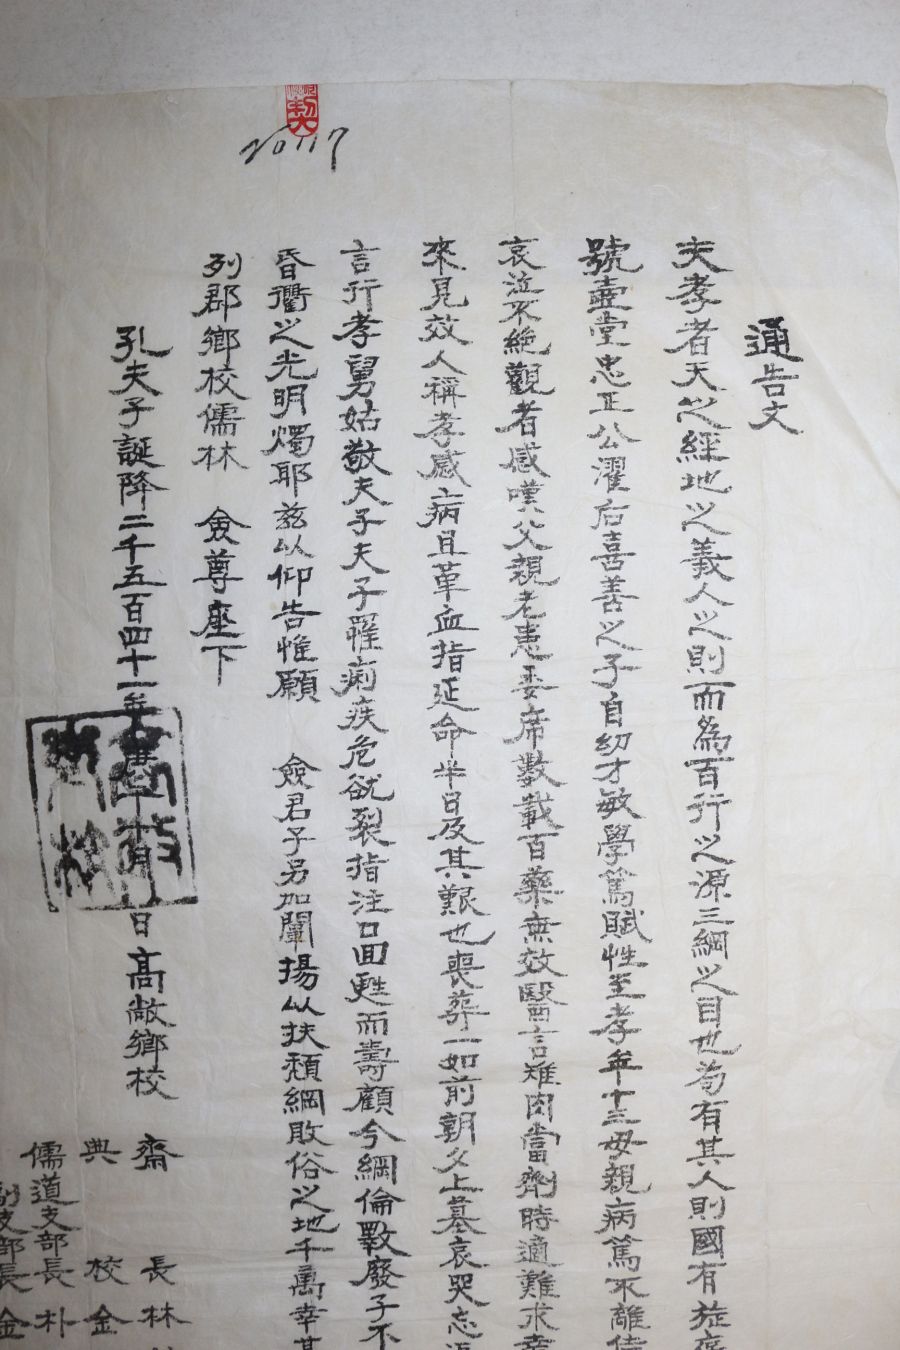 20117
通告文
夫孝者天之經地之義人之則而為百行之源三綱之目也苟有其人則國有旌
號壼堂忠正公濯后喜善之子自幼才敏學篤賦性至孝年十三母親病篤不離
哀泣不絶觀者感嘆父親老患委席數載百藥無效醫言雉肉當劑時適難求
來見效人稱孝感病且革血指延命半日及其艱也喪葬一如前朝夕上墓哀哭忘
言行孝舅姑敬夫子夫子罹痢疾危欲裂指注口回甦而壽顧今綱倫斁廢子不
昏衢之光明燭耶玆以仰告惟願 僉君子另加闡揚以扶頹綱敗俗之地千萬幸
列郡鄉校儒林 僉尊座下
孔夫子誕降二千五百四十一年 十月 日高敞鄉校 齋 長 林
典 校 金
儒道支部長 朴
副支部長 金